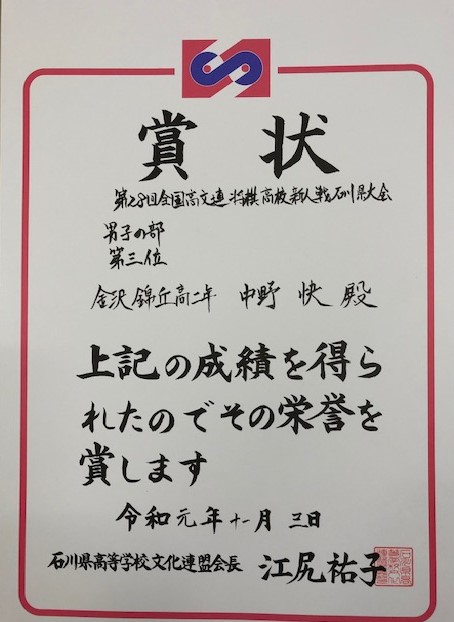 賞状
第28回全国高文連将棋高校新人戦石川県大会
男子の部
第三位
金沢錦丘高二年 中野 快 殿
上記の成績を得ら
れたのでその栄誉を
賞します
令和元年十一月三日
石川県高等学校文化連盟会長 江尻祐子